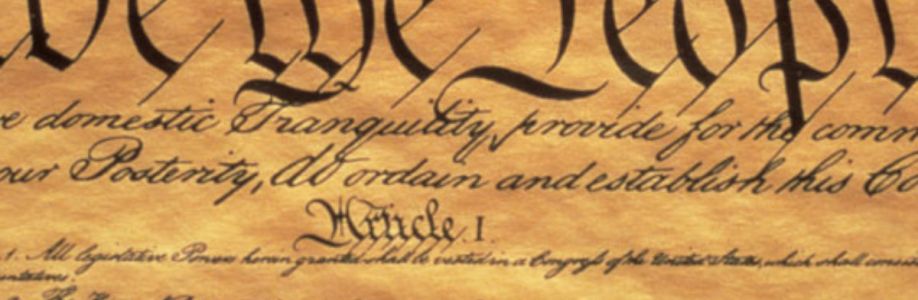 We the People
domestic Tranquility, provide for the comm
our Posterity, do ordain and establish this Co
Article. I.
1. All legislative Powers herein granted shall be vested in a Congress of the United States, which shall consist
entatives.